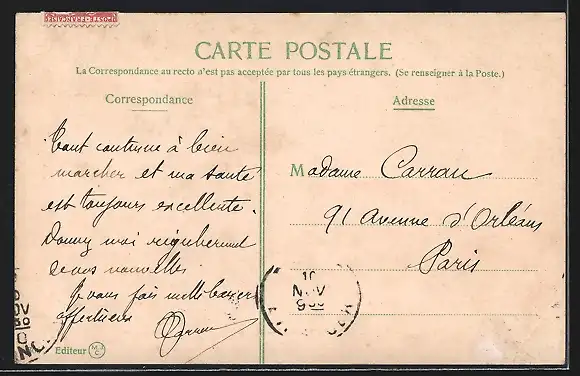 CARTE POSTALE
La Correspondance au recto n'est pas acceptée par tous les pays étrangers. (Se renseigner à la Poste.)
Correspondance
Adresse
Tout continue à bien
marcher et ma santé
est toujours excellente.
Donnez moi régulièrement
de vos nouvelles
Je vous fais mille baisers
affectueux
Carrau
Madame Carrau
91 Avenue d'Orléans
Paris
10
NOV
Editeur